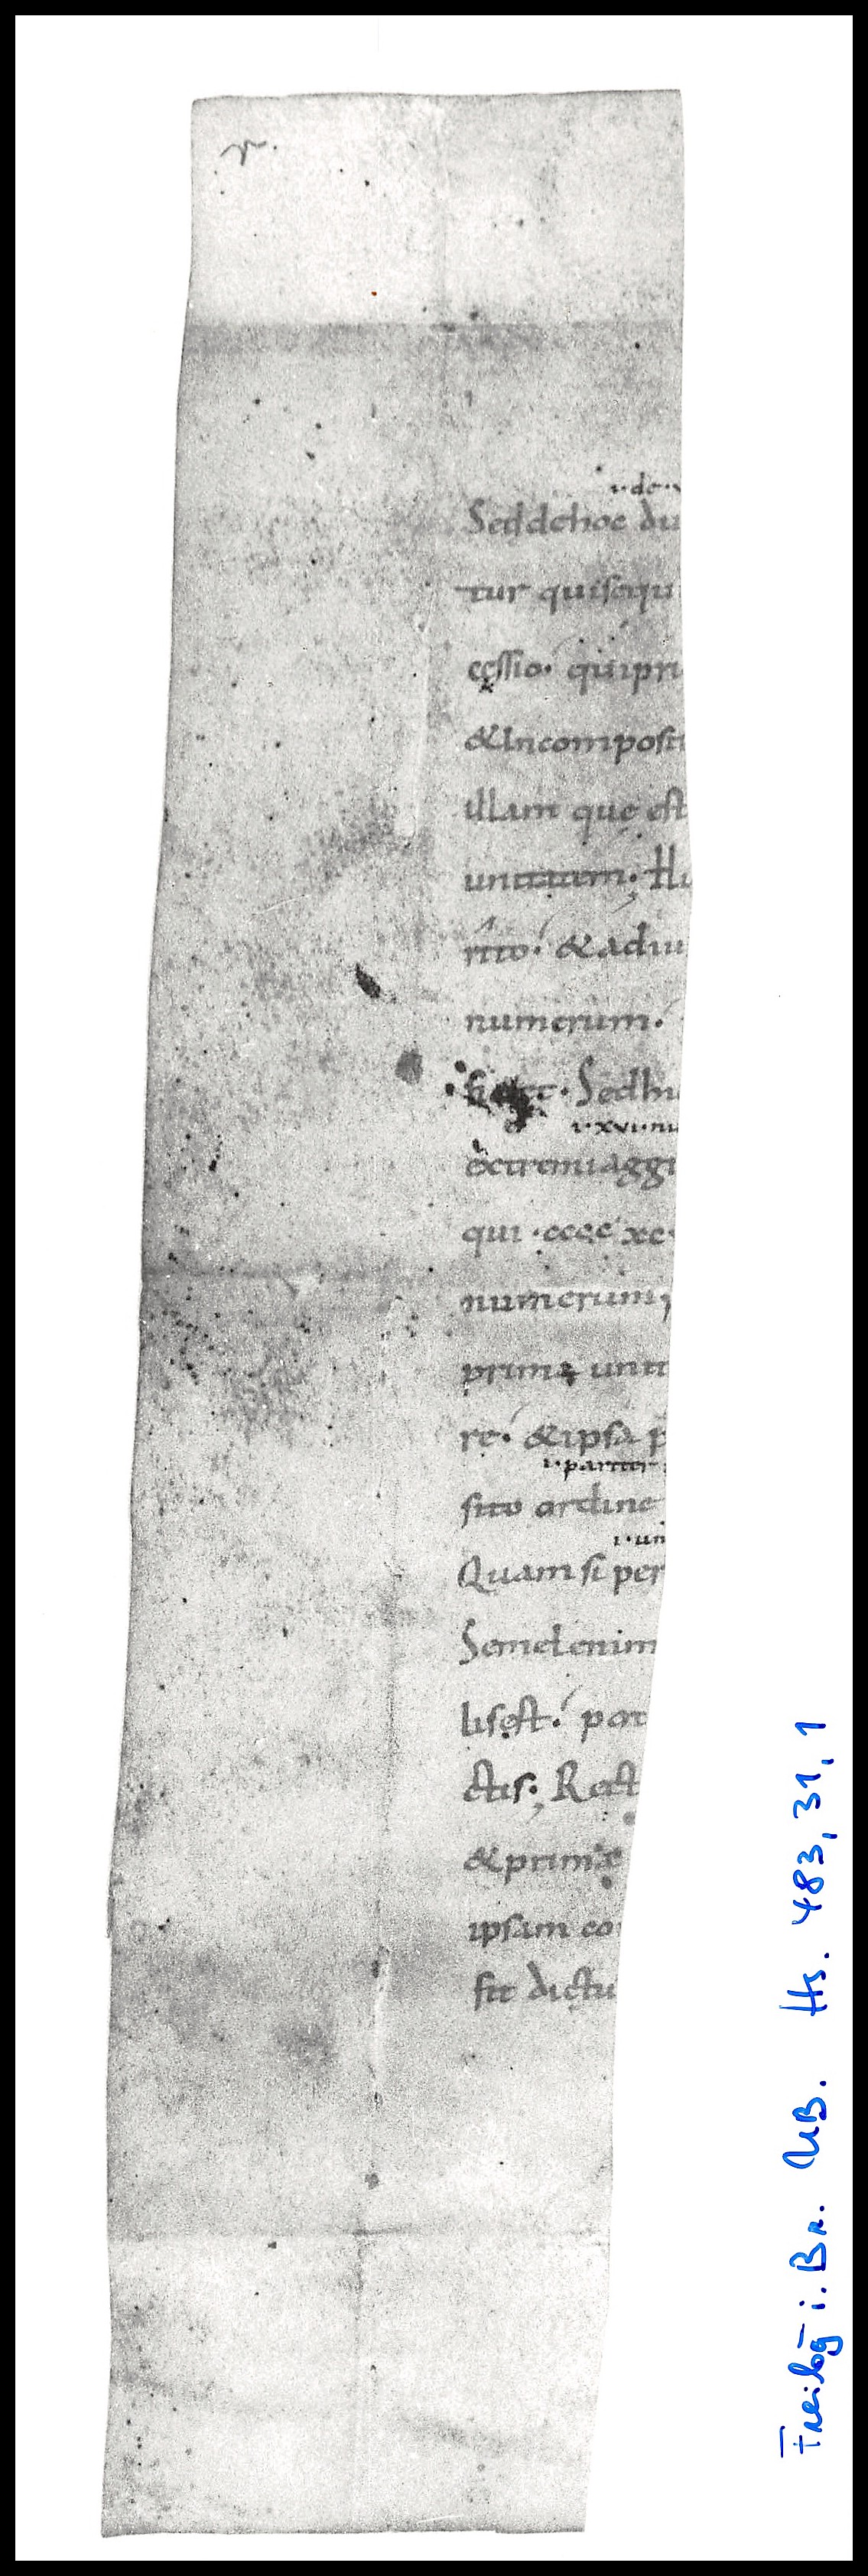 r.
ı·de·
Sed de hoc du
tur quiſequ
ceſſio· quipri
&Incompoſit
illam quę eſt
unitatem· Hu
rito· &adiu
numerum·
Sedhu
ı·xvı·nu
extremi aggr
qui ·cccc xc
numerum
prima unit
re· &ipſa p
ı·partitur
ſito ordine
ı·un
Quam ſi per
Semel enim
lıſ eſt· pot
ctıſ· Rect
&prima
ipſam co
ſit dictu
Freibg i. Br. UB. Hs. 483, 31, 1